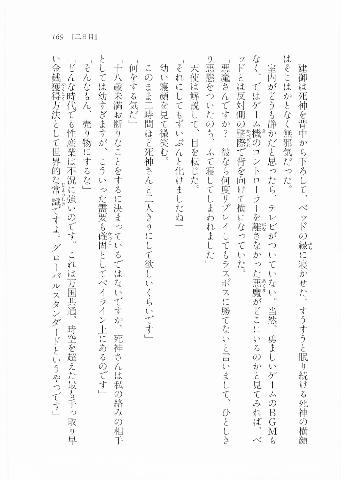 169　［二日目］
　建御は死神を背中から下ろして、ベッドの縁に寝かせた。すうすうと眠り続ける死神の横顔
はそこはかとなく無邪気だった。
　室内がどうも静かだと思ったら、テレビがついていない。当然、勇ましいゲームのBGMも
なく、ではゲーム機のコントローラーを離さなかった悪魔がどこにいるのかと見てみれば、ベ
ッドとは反対側の壁際で背を向けて横になっていた。
「悪魔さんですか？　彼なら何度リプレイしてもラスボスに勝てないと言いまして、ひとしき
り悪態をついたのち、ふて寝してしまわれました」
　天使は解説して、目を転じた。
「それにしてもずいぶんと化けましたね」
　幼い寝顔を見て微笑む。
「このまま二時間ほど死神さんと二人きりにして欲しいくらいです」
「何をする気だ」
「十八歳未満お断りなことをするに決まっているではないですか。死神さんは私の絡みの相手
としては幼すぎますが、こういった需要も確固としてベイライン上にあるのです」
「そんなもん、売り物にするな」
「どんな時代でも性産業は不況に強いのです。これは万国共通、時空を超えた最も手っ取り早
い金銭獲得方法として世界的な常識ですよ。グローバルスタンダードというやつです？」